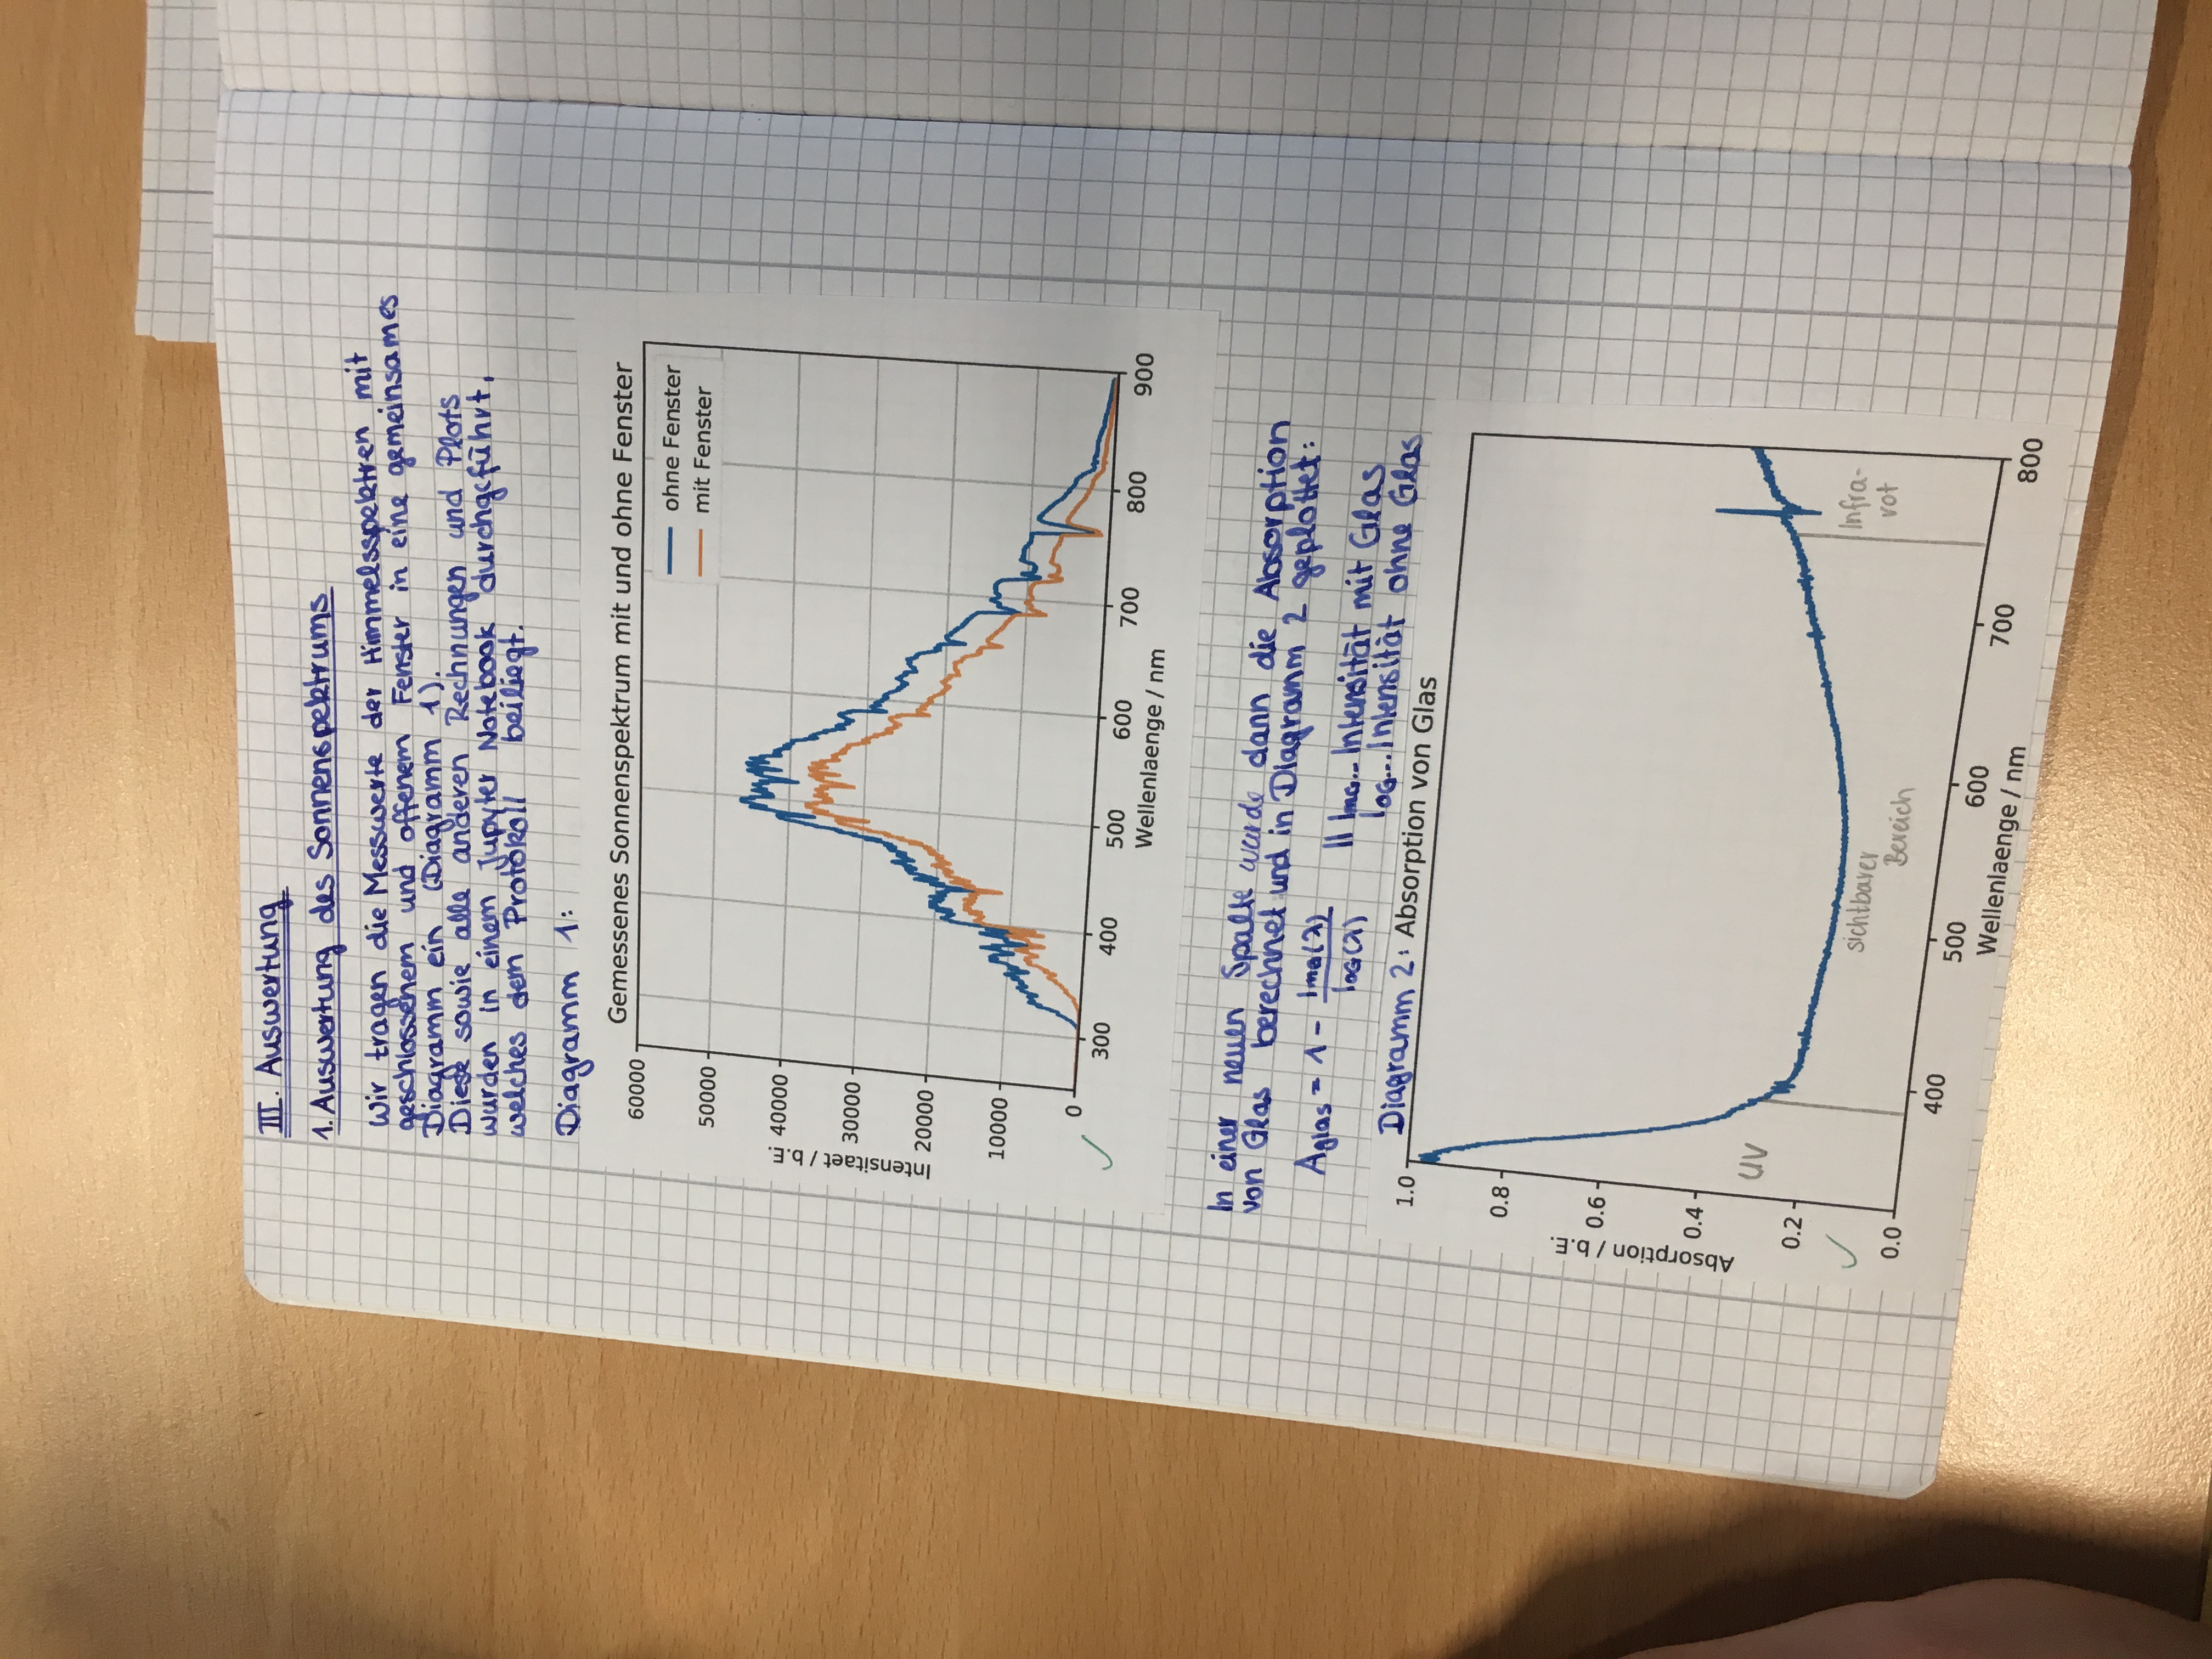 III. Auswertung
1. Auswertung des Sonnenspektrums
Wir tragen die Messwerte der Himmelsspektren mit
geschlossenem und offenem Fenster in eine gemeinsames
Diagramm ein (Diagramm 1).
Diese sowie alle anderen Rechnungen und Plots
wurden in einem Jupyter Notebook durchgeführt,
welches dem Protokoll beiliegt.
Diagramm 1:
Gemessenes Sonnenspektrum mit und ohne Fenster
ohne Fenster
mit Fenster
Intensitaet / b.E.
60000
50000
40000
30000
20000
10000
0
300 400 500 600 700 800 900
Wellenlaenge / nm
In einer neuen Spalte wurde dann die Absorption
von Glas berechnet und in Diagramm 2 geplottet:
AGlas = 1 - ImG(λ) / IoG(λ)
|| ImG... Intensität mit Glas
IoG... Intensität ohne Glas
Diagramm 2: Absorption von Glas
Absorption / b.E.
1.0
0.8
0.6
0.4
0.2
0.0
UV
sichtbarer
Bereich
Infra-
rot
400 500 600 700 800
Wellenlaenge / nm